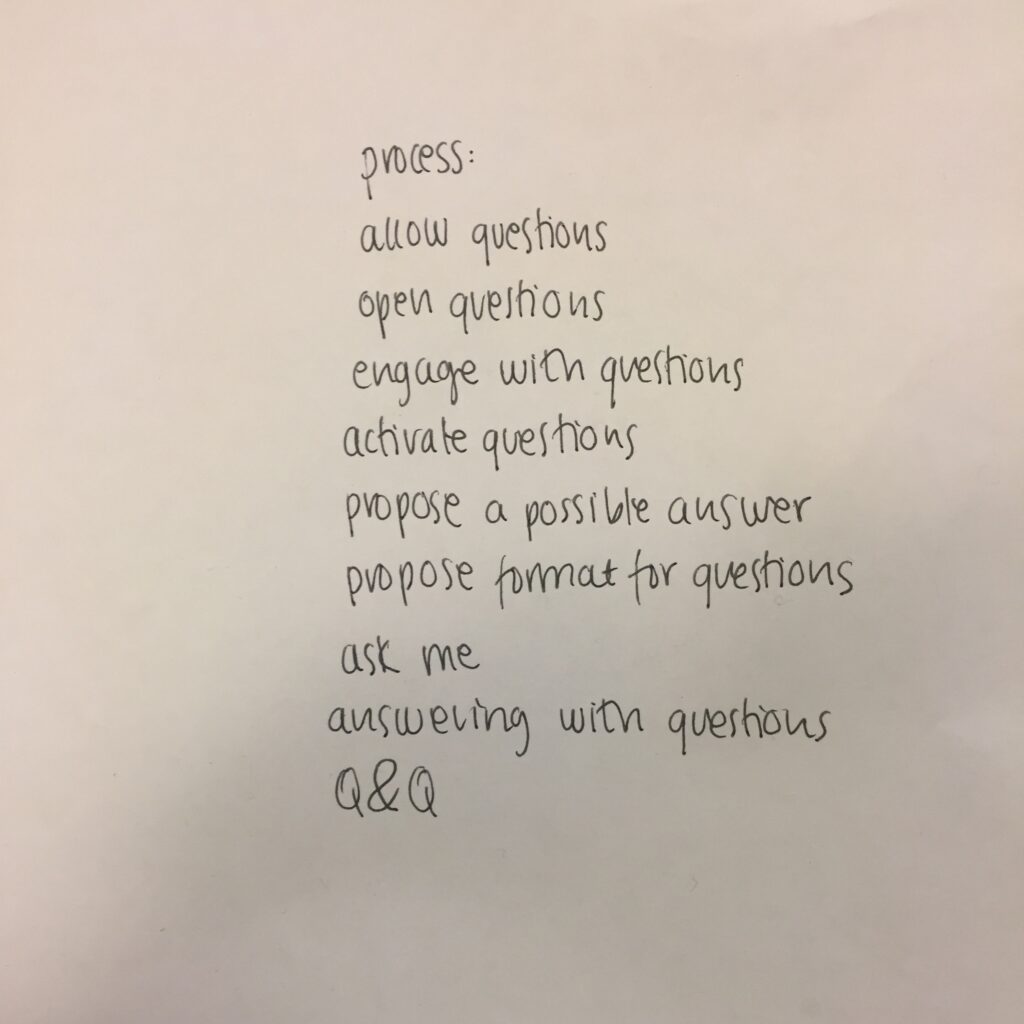 process:
allow questions
open questions
engage with questions
activate questions
propose a possible answer
propose format for questions
ask me
answering with questions
Q&Q